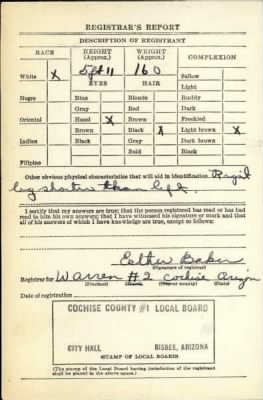 REGISTRAR'S REPORT
DESCRIPTION OF REGISTRANT
RACE HEIGHT (Approx.) WEIGHT (Approx.) COMPLEXION
White X 5 ft 11 160 Sallow
EYES HAIR Light
Negro Blue Blonde Ruddy
Gray Red Dark
Oriental Hazel X Brown Freckled
Brown Black X Light brown X
Indian Black Gray Dark brown
Bald Black
Filipino
Other obvious physical characteristics that will aid in identification. Right
leg shorter than left.
I certify that my answers are true; that the person registered has read or has had
read to him his own answers; that I have witnessed his signature or mark and that
all of his answers of which I have knowledge are true, except as follows:
Esther Baker
(Signature of registrar)
Registrar for Warren #2 Cochise Arizon
(Precinct) (City or county) (State)
Date of registration
COCHISE COUNTY #1 LOCAL BOARD
CITY HALL BISBEE, ARIZONA
(STAMP OF LOCAL BOARD)
(The stamp of the Local Board having jurisdiction of the registrant
shall be placed in the above space.)